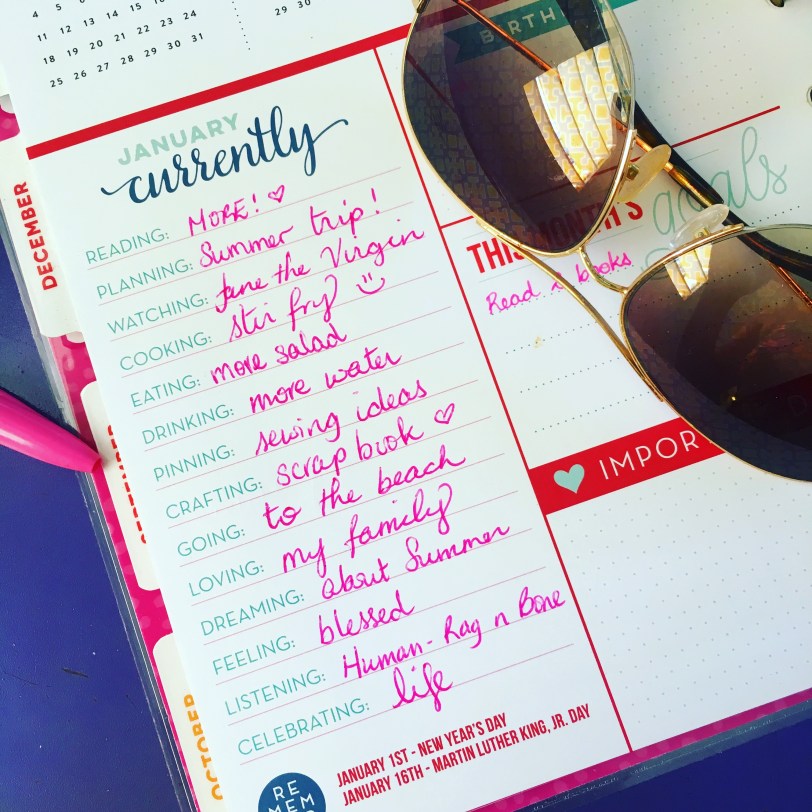 4 5 6
11 12 13 14 15 16 17
18 19 20 21 22 23 24
25 26 27 28 29 30 31
29 30
BIRTH
JANUARY
currently
READING: MORE! ♡
PLANNING: Summer trip!
WATCHING: Jane the Virgin
COOKING: stir fry ☺
EATING: more salad
DRINKING: more water
PINNING: sewing ideas
CRAFTING: scrapbook ♡
GOING: to the beach
LOVING: my family
DREAMING: about Summer
FEELING: blessed
LISTENING: Human - Rag n Bone
CELEBRATING: life
RE
MEM
JANUARY 1ST - NEW YEAR'S DAY
JANUARY 16TH - MARTIN LUTHER KING, JR. DAY
THIS MONTH'S
goals
Read books
IMPOR
DECEMBER
OCTOBER